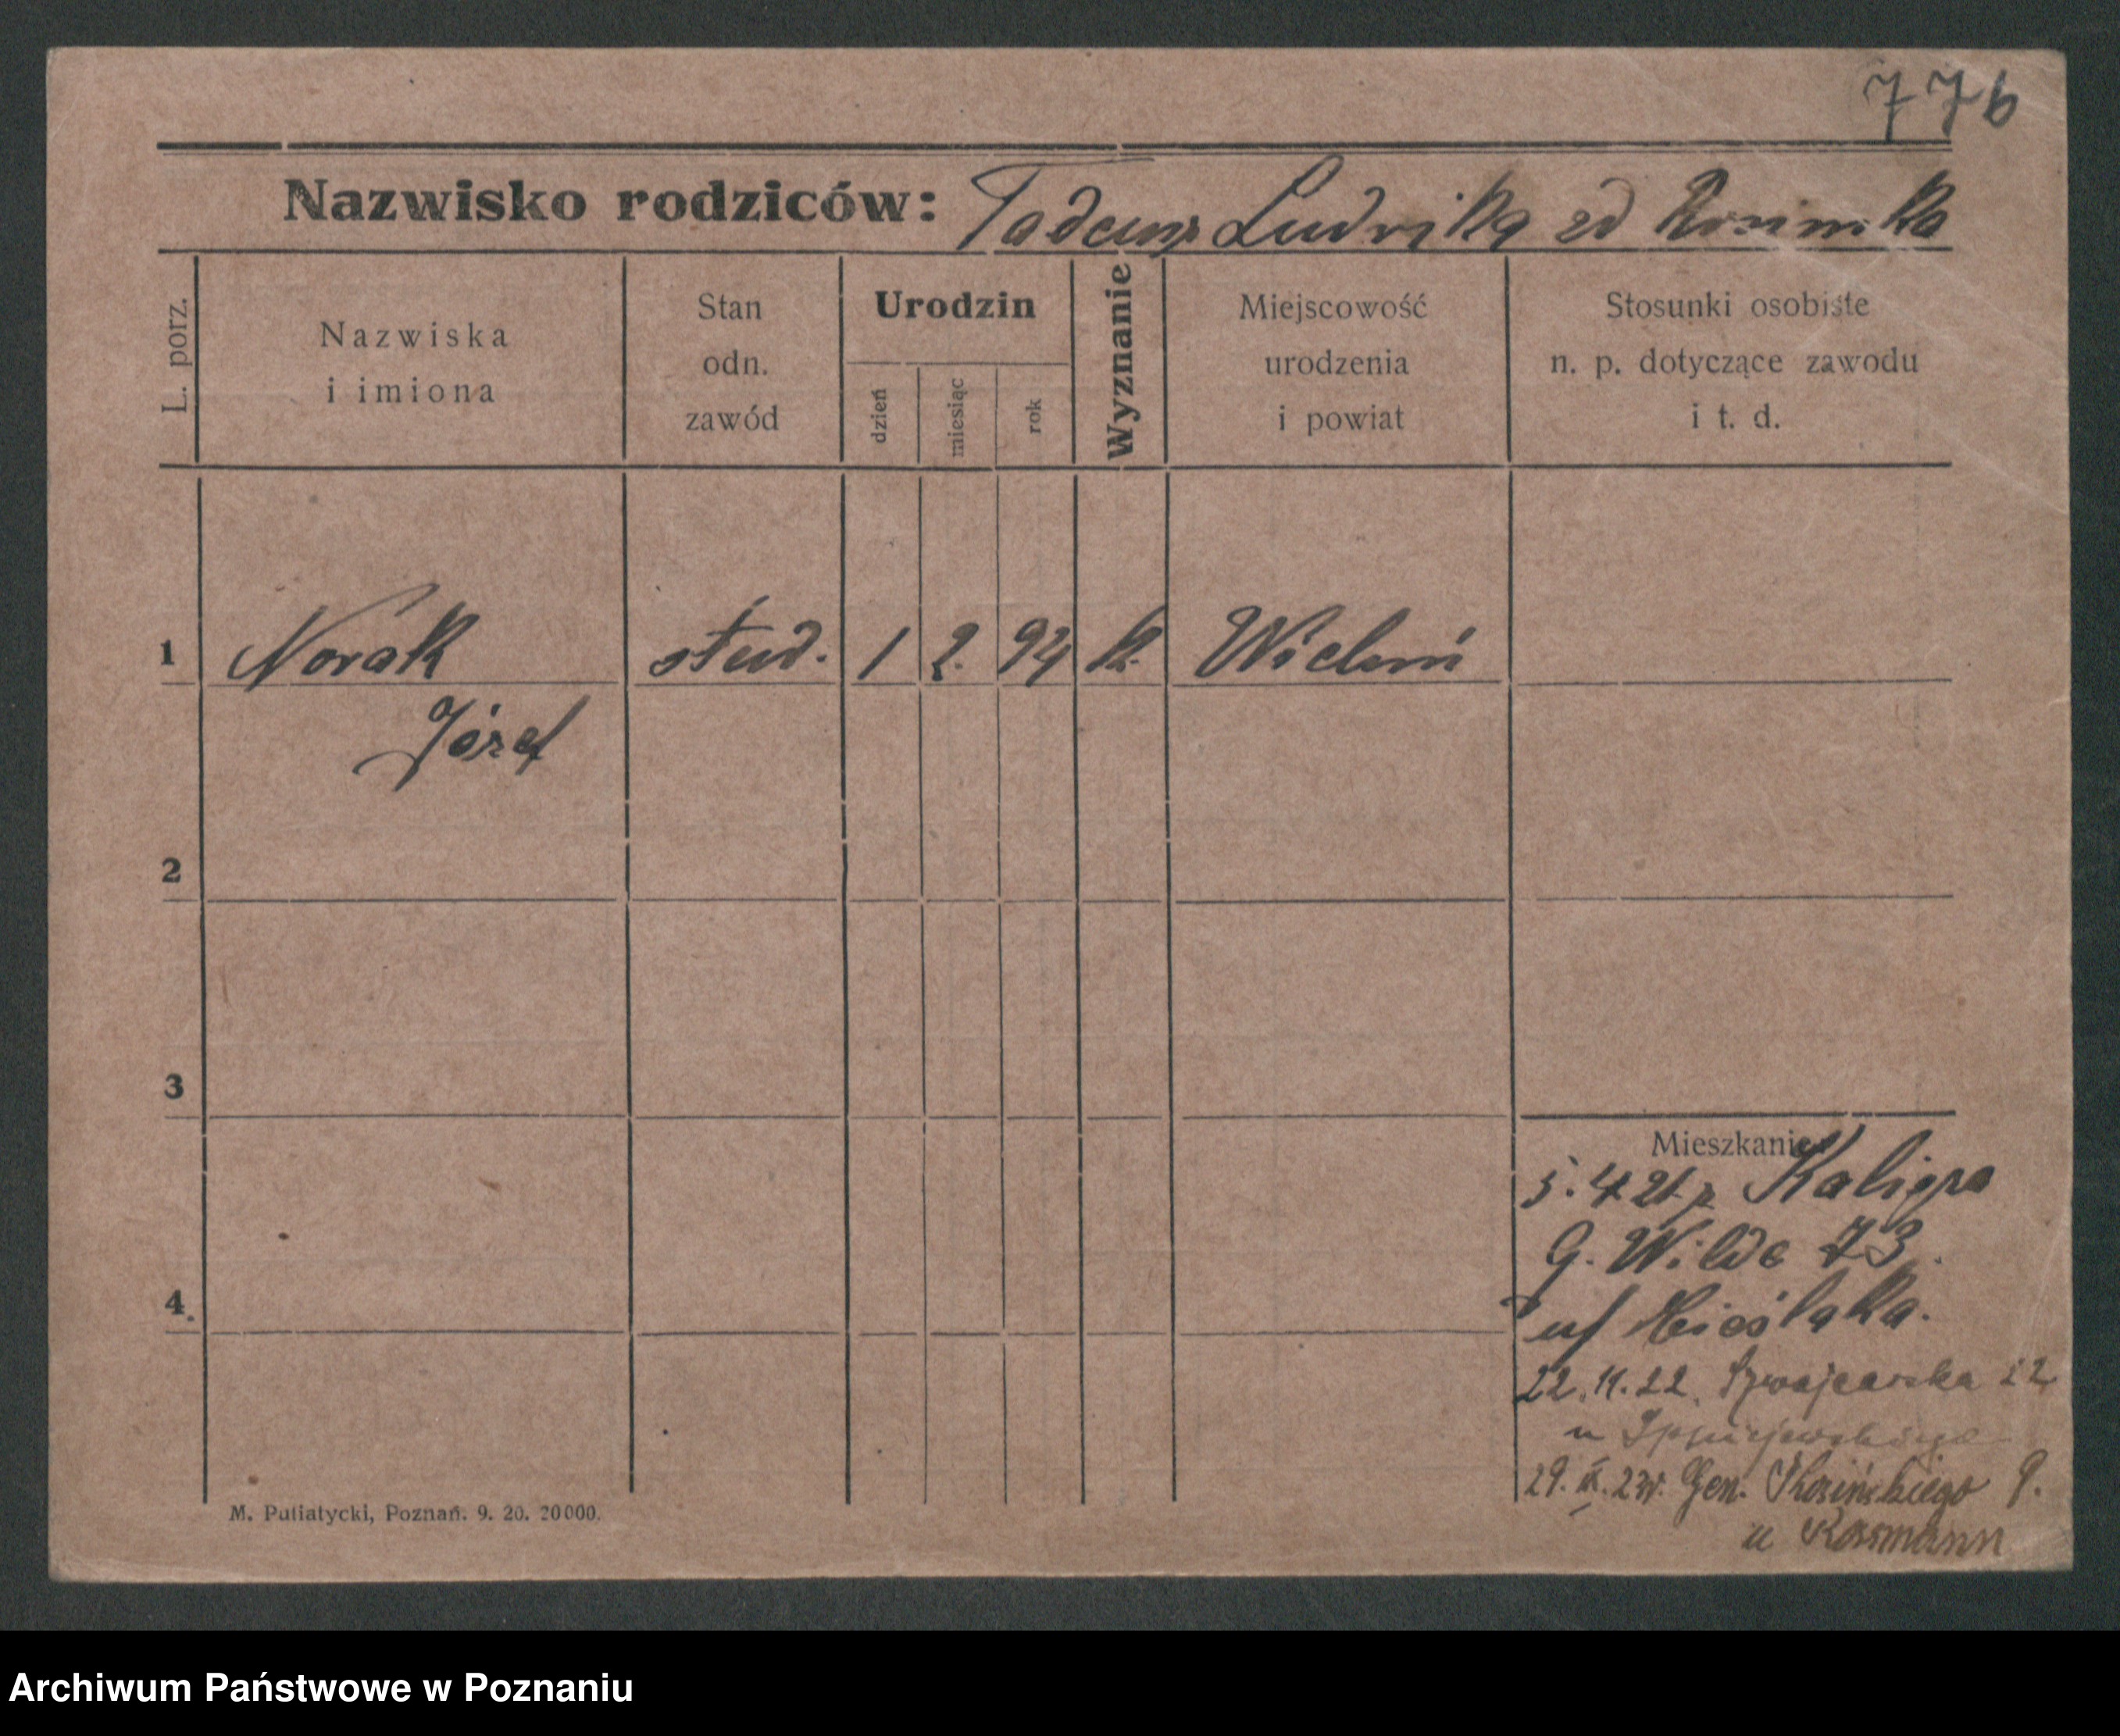 776
Nazwisko rodziców: Tadeusz Ludwika zd
L. porz.
Nazwiska
i imiona
Stan
odn.
zawód
Urodzin
dzień
miesiąc
rok
Wyznanie
Miejscowość
urodzenia
i powiat
Stosunki osobiste
n. p. dotyczące zawodu
i t. d.
1 Nowak stud. 1 2. 94 k. Wieluń
Józef
2
3
4.
Mieszkanie
5. 4 21 z Kalisza
G. Wilda 73.
22.11.22. Szwajcarska 22
u
29. 23r. Gen. 9.
u
M. Putiatycki, Poznań. 9. 20. 20000.
Archiwum Państwowe w Poznaniu